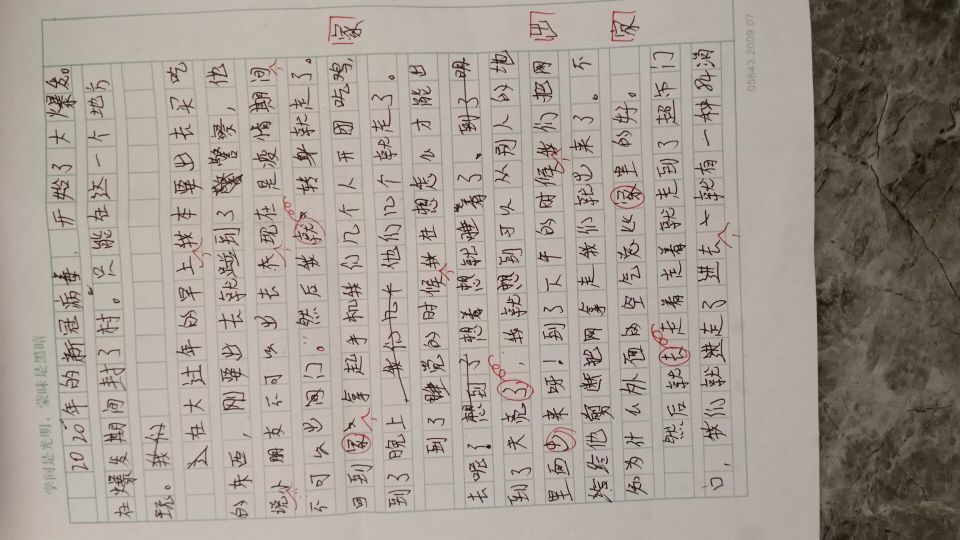 学问是光明，蒙昧是黑暗
2020年的新冠病毒，开始了大爆发。
在爆发期间封了村。只能在这一个地方
玩。我们
在大过年的早上我本要出去买吃
的东西，刚要出去就碰到了警察，他
说朋友不可以出去现在是疫情期间
不可以出门。然后我就转身就走了。
回到家拿起手机我们几个人开团吃鸡，
到了晚上他们几个就走了。
到了睡觉的时候我在想怎么才能出
去呢？想着想就睡着了、
到了天亮了，我就想到可以从别人的地
里面出来呀！到了下午的时候我们把网
给他剪断把网拿走我们就出来了。不
知为什么外面的空气怎么家里的好。
然后就走着走着就走到了超市门
口，我们就进走了进去，就有一种
家
出
家
05643.2009.07